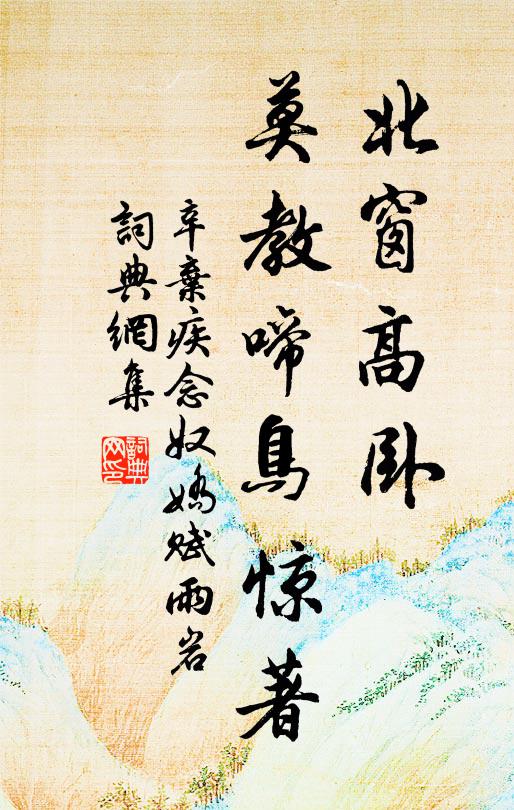 北窗高卧
莫教啼鳥惊著
辛棄疾念奴嬌賦雨岩
詞典網集
詞典網印